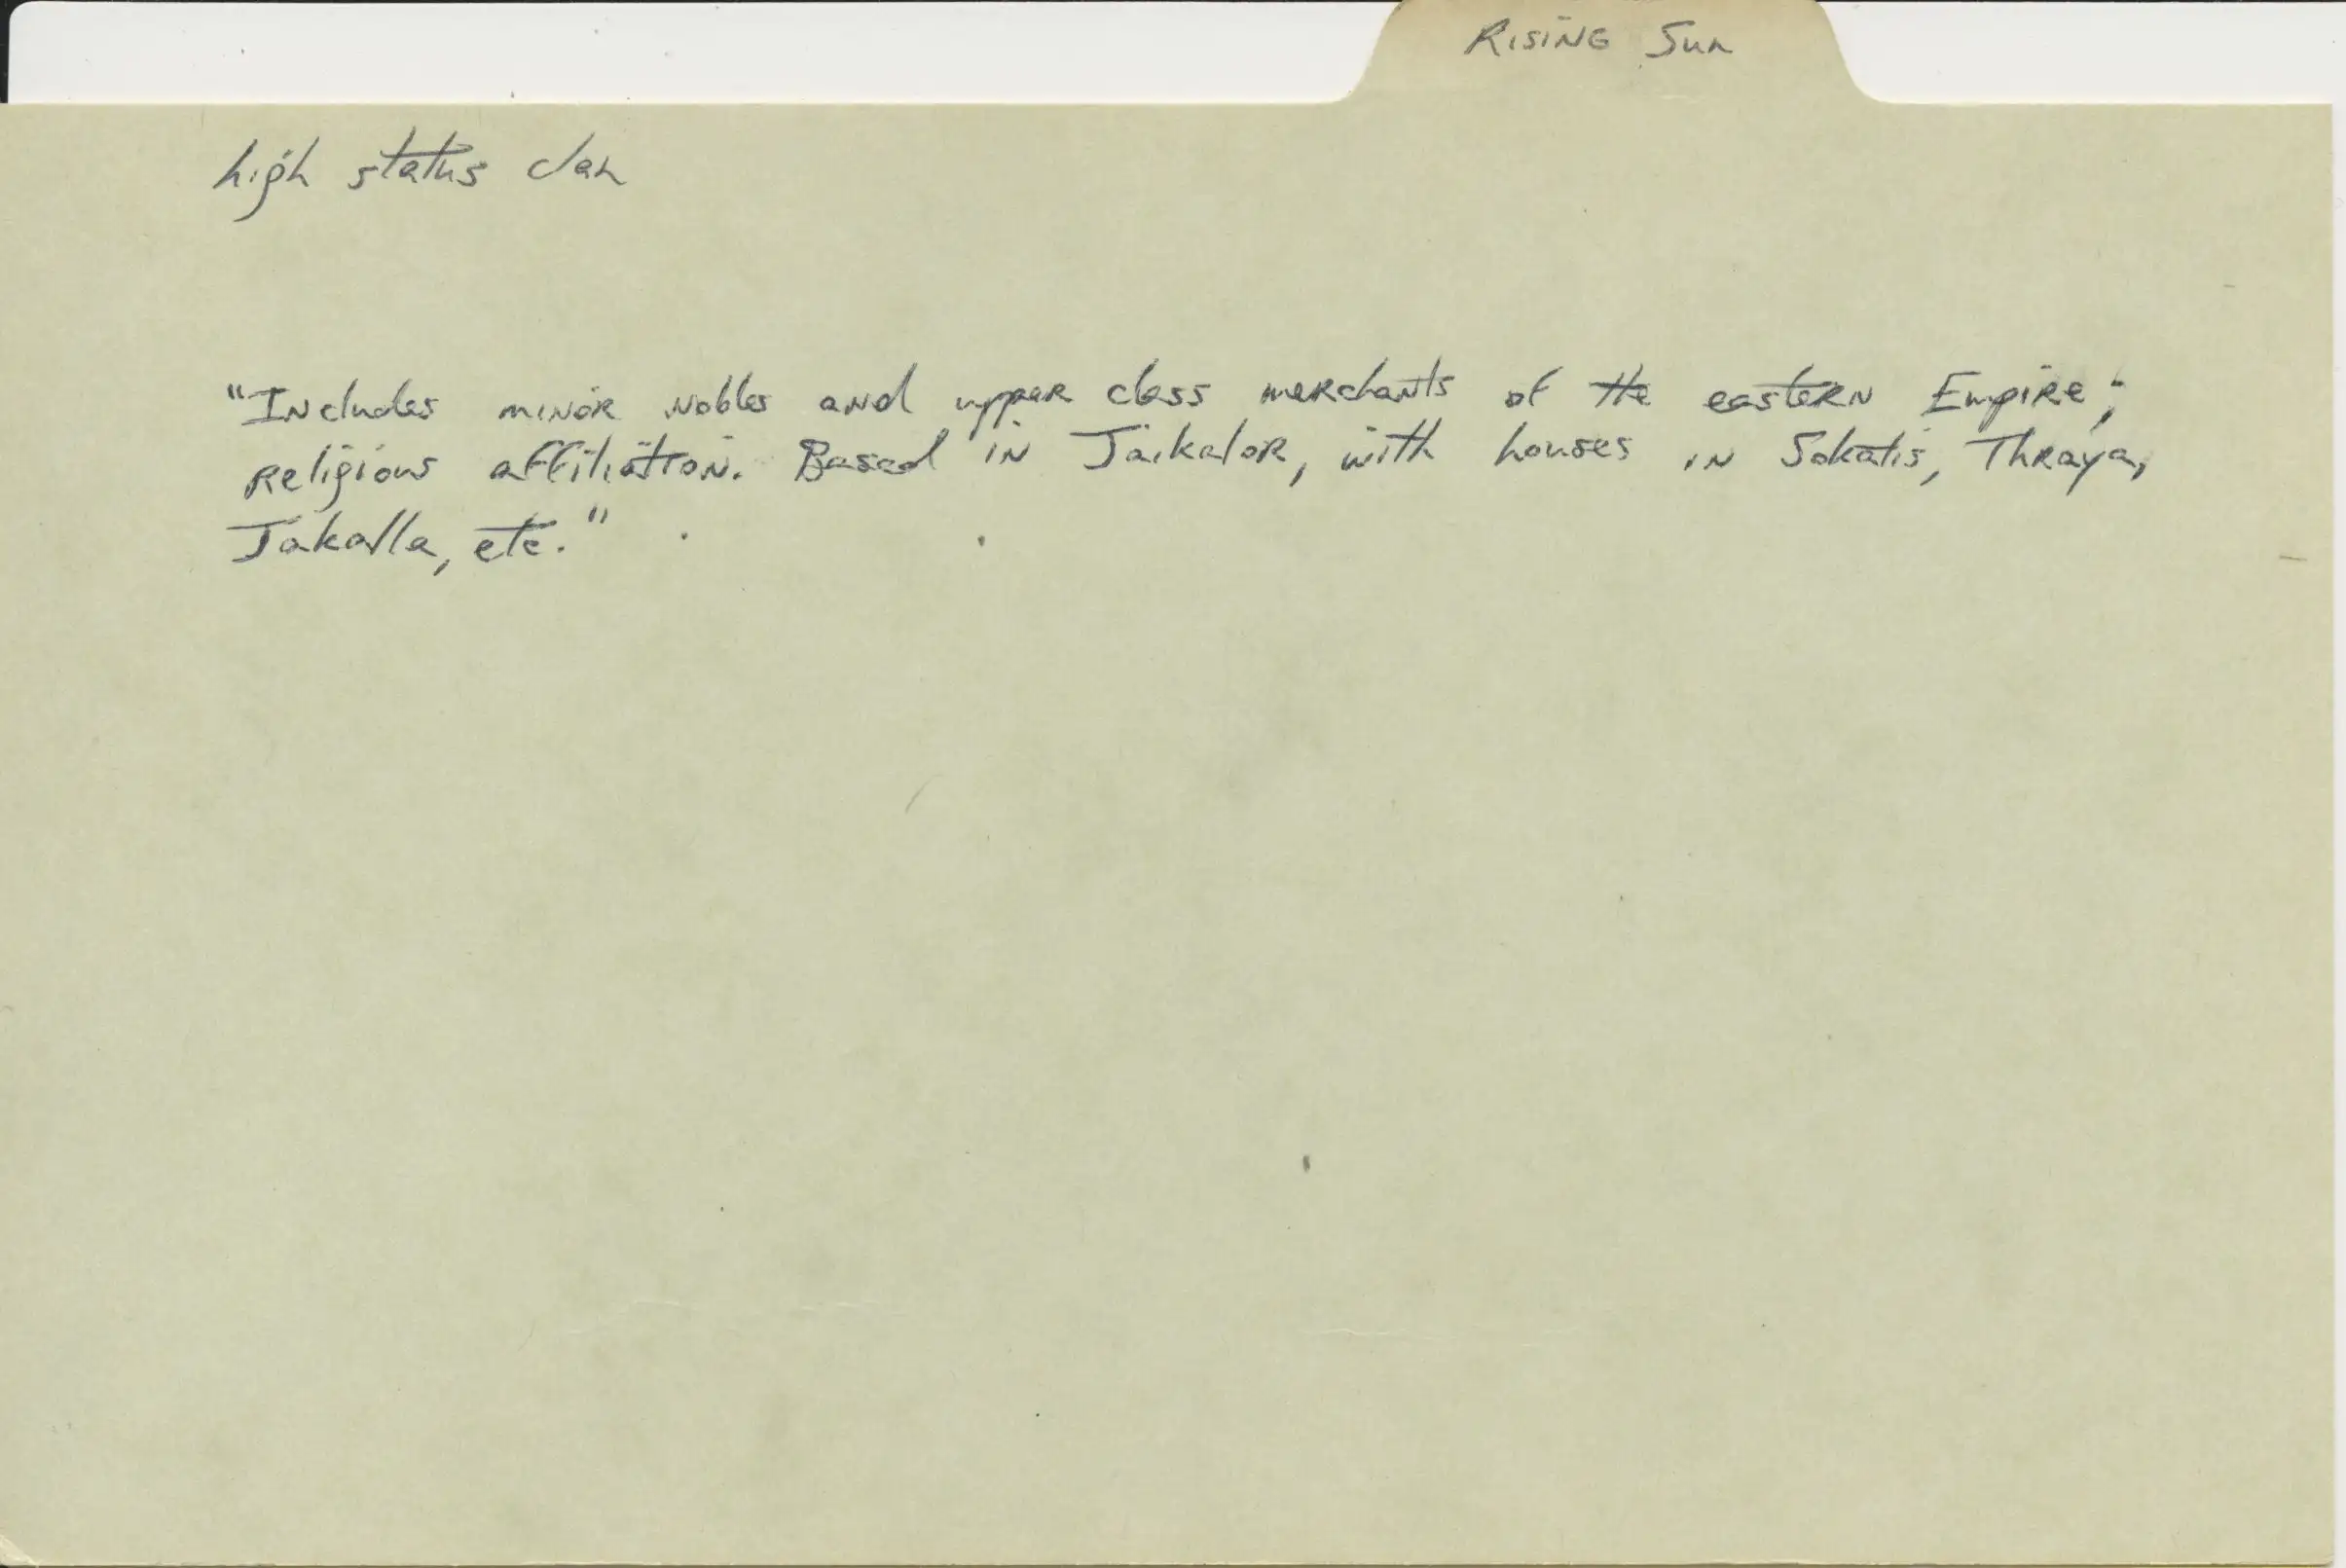 RISING Sun
high status clan
"Includes minor nobles and upper class merchants of the eastern Empire;
religious affiliation. Based in Jaikalor, with houses in Sokatis, Thraya,
Jakalla, etc."